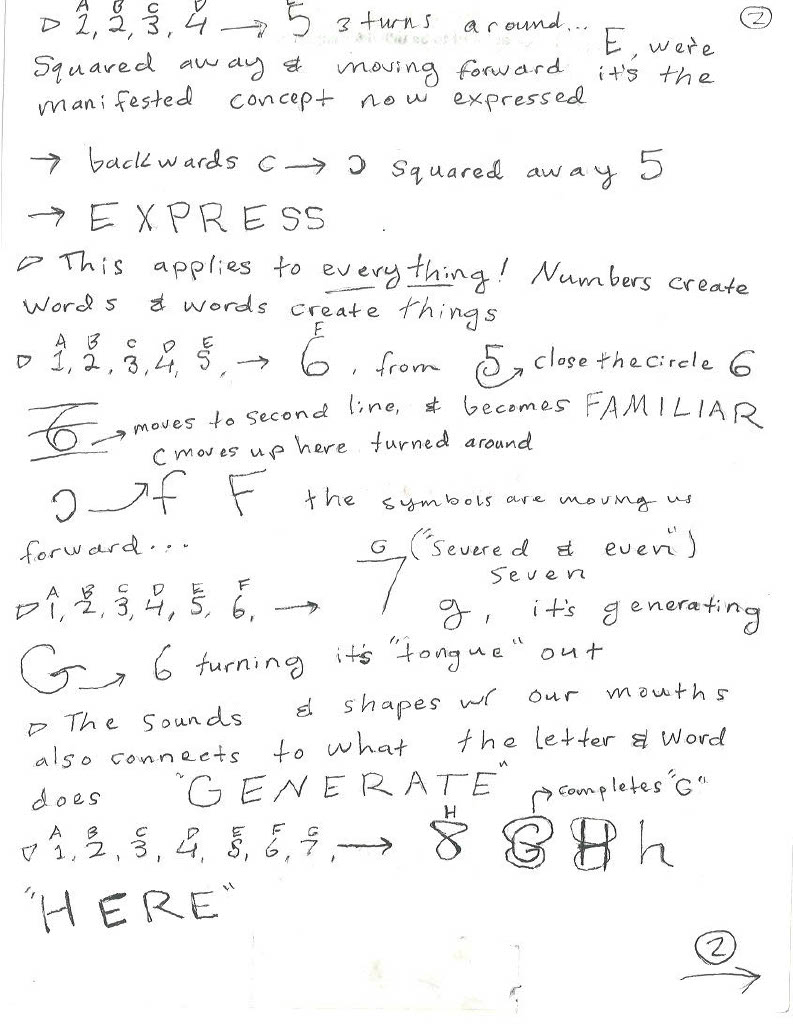 A B C D
▷ 1, 2, 3, 4 → 5 3 turns around... E, were ②
Squared away & moving forward it's the
manifested concept now expressed
→ backwards C → Ɔ squared away 5
→ EXPRESS
▷ This applies to everything! Numbers create
words & words create things
A B C D E F
▷ 1, 2, 3, 4, 5, → 6, from 5 → close the circle 6
6 → moves to second line, & becomes FAMILIAR
C moves up here turned around
Ɔ → f F the symbols are moving us
forward...
G ("Severed & even")
seven
A B C D E F
▷ 1, 2, 3, 4, 5, 6, → 7 g, it's generating
G → 6 turning it's "tongue" out
▷ The sounds & shapes w/ our mouths
also connects to what the letter & word
does "GENERATE" → completes "G"
A B C D E F G H
▷ 1, 2, 3, 4, 5, 6, 7, → 8 G H h
"HERE"
② →